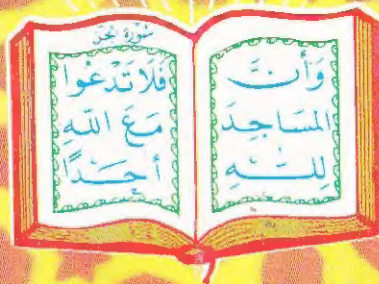 وَأَنَّ
المَسَاجِدَ
لِلَّهِ
سُورَة الجن
فَلَا تَدْعُوا
مَعَ اللَّهِ
أَحَدًا